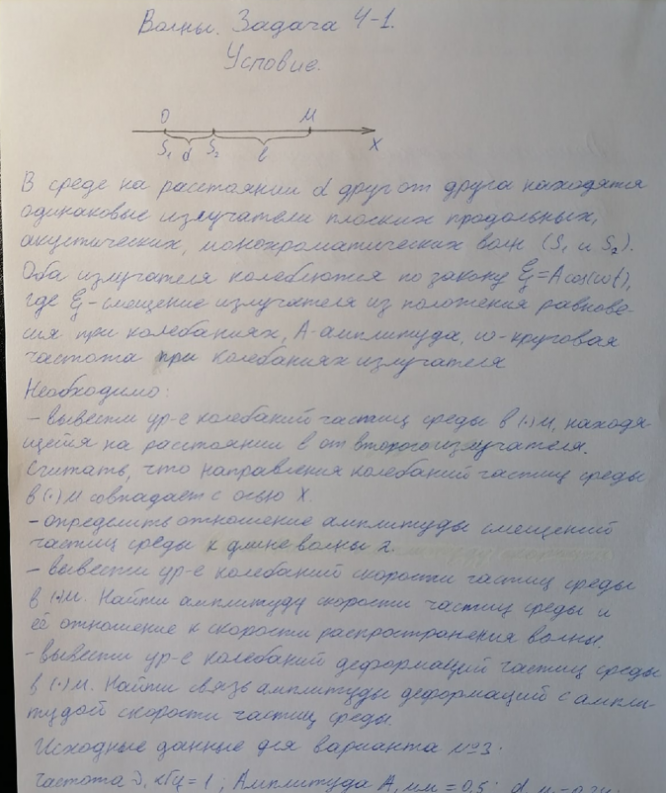 Волны. Задача 4-1.
Условие.
O M
S₁ d S₂ l X
В среде на расстоянии d друг от друга находятся
одинаковые излучатели плоских продольных,
акустических, монохроматических волн (S₁ и S₂).
Оба излучателя колеблются по закону ξ=Acos(ωt),
где ξ - смещение излучателя из положения равнове-
сия при колебаниях, A-амплитуда, ω-круговая
частота при колебаниях излучателя
Необходимо:
- вывести ур-е колебаний частиц среды в (·) M, находя-
щейся на расстоянии l от второго излучателя.
Считать, что направления колебаний частиц среды
в (·) M совпадает с осью X.
- определить отношение амплитуды смещений
частиц среды к длине волны
- вывести ур-е колебаний скорости частиц среды
в (·) M. Найти амплитуду скорости частиц среды и
её отношение к скорости распространения волны.
- вывести ур-е колебаний деформаций частиц среды
в (·) M. Найти связь амплитуды деформаций с ампли-
тудой скорости частиц среды.
Исходные данные для варианта №3.
Частота ν, кГц = 1; Амплитуда A, мм = 0,5;